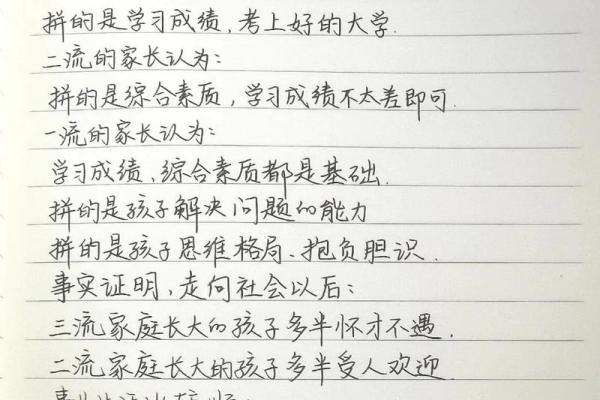 拼的是学习成绩,考上好的大学.
二流的家长认为:
拼的是综合素质,学习成绩不太差即可.
一流的家长认为:
学习成绩、综合素质都是基础.
拼的是孩子解决问题的能力
拼的是孩子思维格局、抱负胆识.
事实证明,走向社会以后:
三流家庭长大的孩子多半怀才不遇.
二流家庭长大的孩子多半受人欢迎.